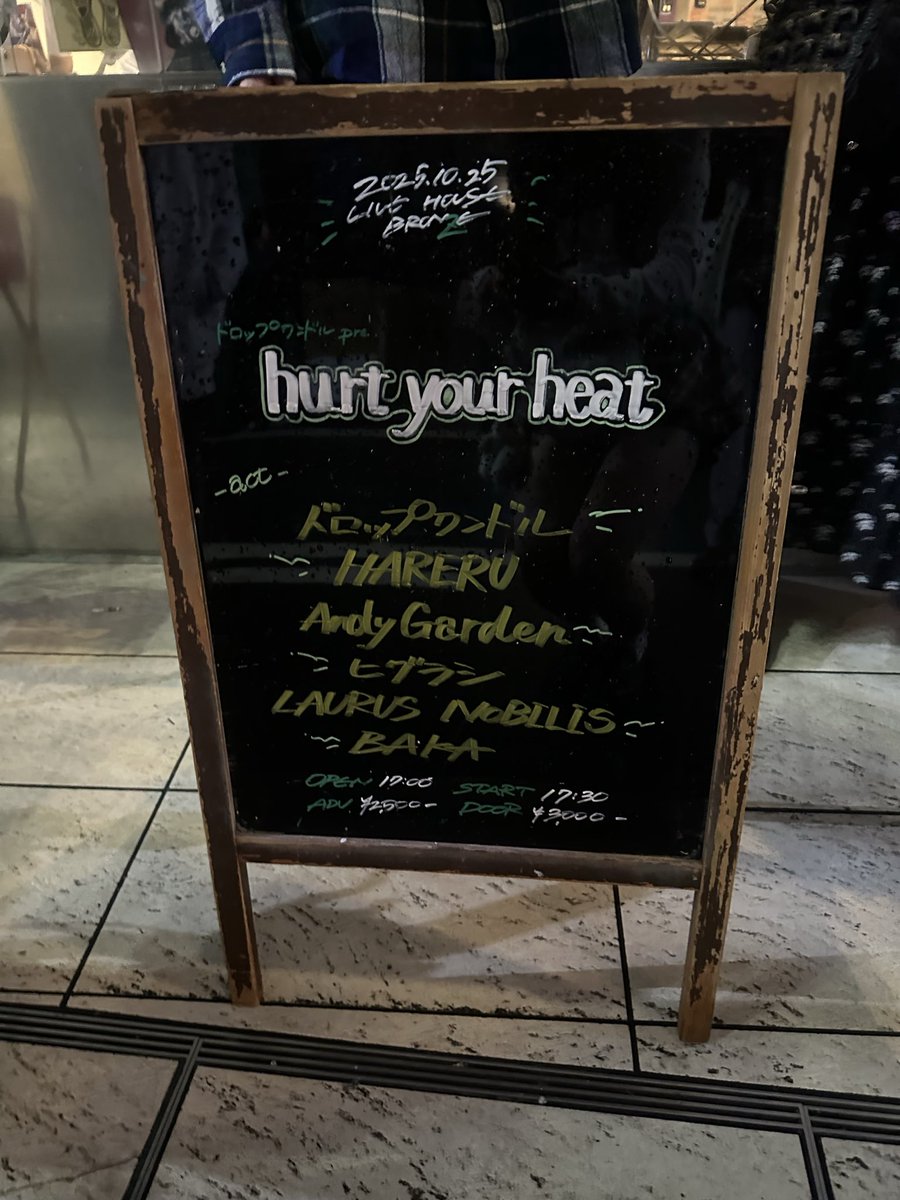 2025.10.25
LIVE HOUSE
BRONZE
ドロップクンドル pre.
hurt your heat
-act-
ドロップクンドル
HARERU
Andy Garden
ヒグラシ
LAURUS NOBILIS
BAKA
OPEN 17:00 START 17:30
ADV ¥2500- DOOR ¥3000-